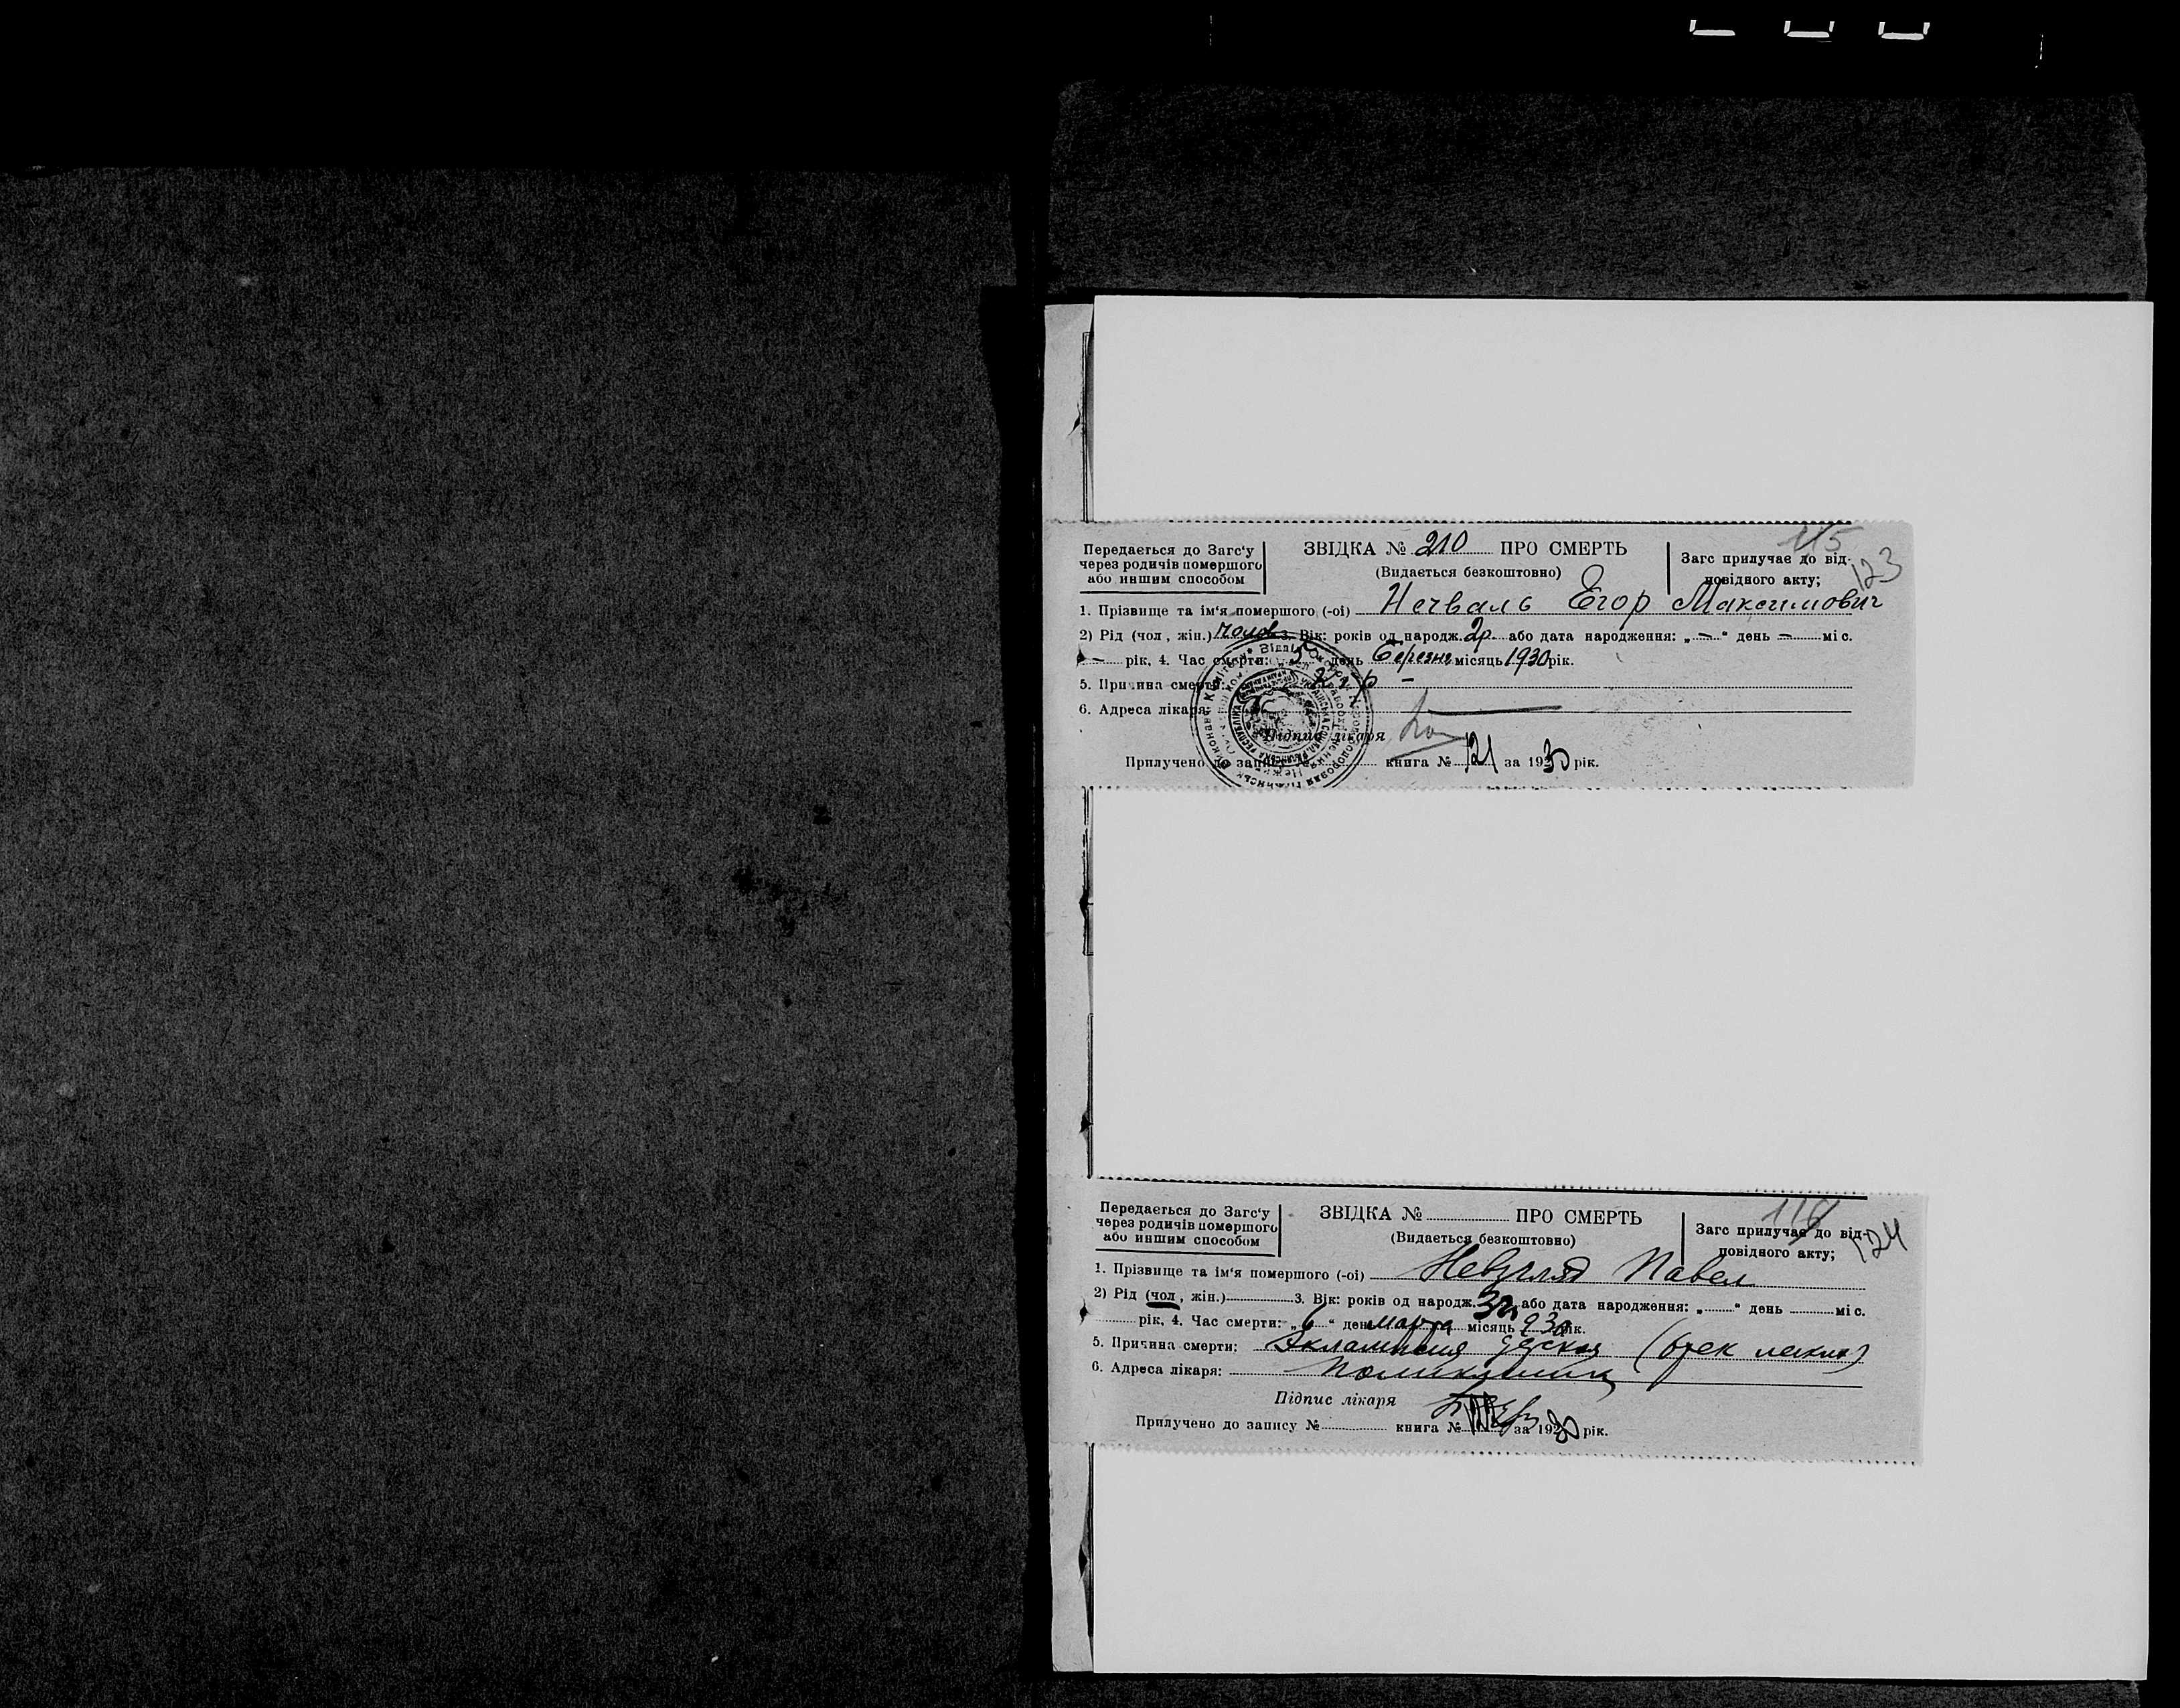 115
123
Передається до Загс'у
через родичів помершого
або иншим способом
ЗВІДКА № 210 ПРО СМЕРТЬ
(Видається безкоштовно)
Загс прилучає до від-
повідного акту;
1. Прізвище та ім'я помершого (-ої) Нечваль Егор Максимович
2) Рід (чол, жін.) чолов 3. Вік: років од народж. 2р. або дата народження: „ — “ день — міс.
— рік, 4. Час смерти: 5 день Березня місяць 1930 рік.
5. Причина смерти:
6. Адреса лікаря:
Підпис лікаря
Прилучено до запису книга № 121 за 1930 рік.
116
124
Передається до Загс'у
через родичів помершого
або иншим способом
ЗВІДКА № ПРО СМЕРТЬ
(Видається безкоштовно)
Загс прилучає до від-
повідного акту;
1. Прізвище та ім'я помершого (-ої) Невзгляд Павел
2) Рід (чол, жін.) 3. Вік: років од народж. 3 або дата народження: „ “ день міс.
рік, 4. Час смерти: „ 6 “ день марта місяць 930 рік.
5. Причина смерти: Эклампсия детская (отек легких)
6. Адреса лікаря: Поликлиника
Підпис лікаря
Прилучено до запису № книга № за 1930 рік.